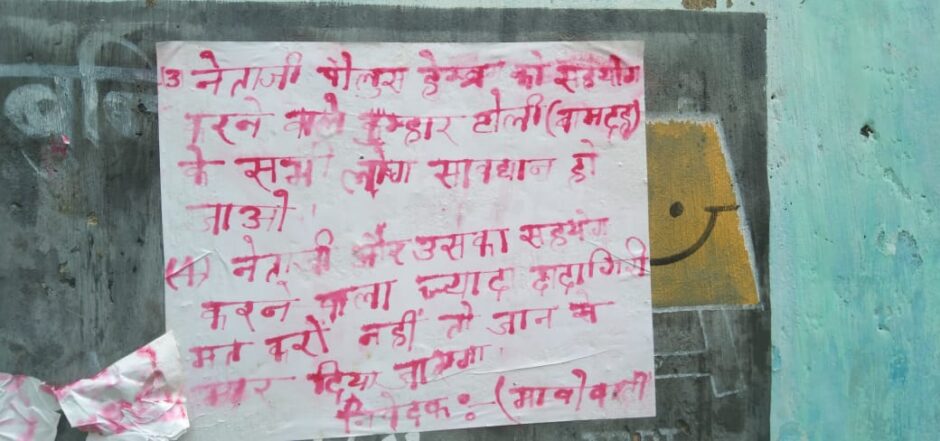 (3 नेताजी पौलुस हेम्ब्रम को सहयोग
करने वाले कुम्हार टोली (बामदह)
के सभी लोग सावधान हो
जाओ।
(4) नेताजी और उसका सहयोग
करने वाला ज्यादा दादागिरी
मत करों नहीं तो जान से
मार दिया जाएगा
निवेदक : (मावोवादी